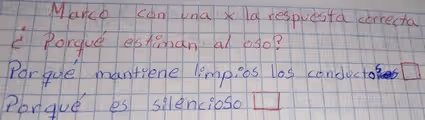 Marco con una x la respuesta correcta
¿ Porqué estiman al oso?
Porqué mantiene limpios los conductos
Porqué es silencioso